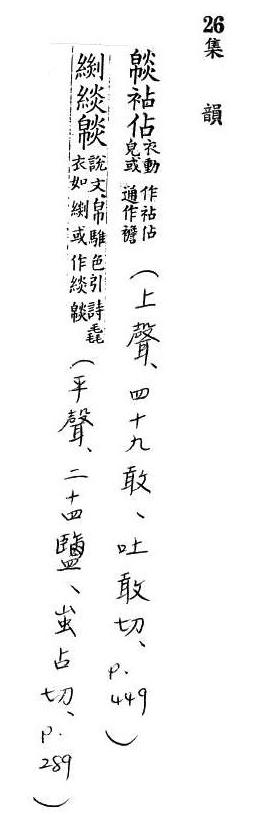 26集韻
袩佔衣動皃或作袩佔通作襜（上聲、四十九敢、吐敢切、p.449）
緂說文帛騅色引詩毳衣如或作緂（平聲、二十四鹽、蚩占切、p.289）